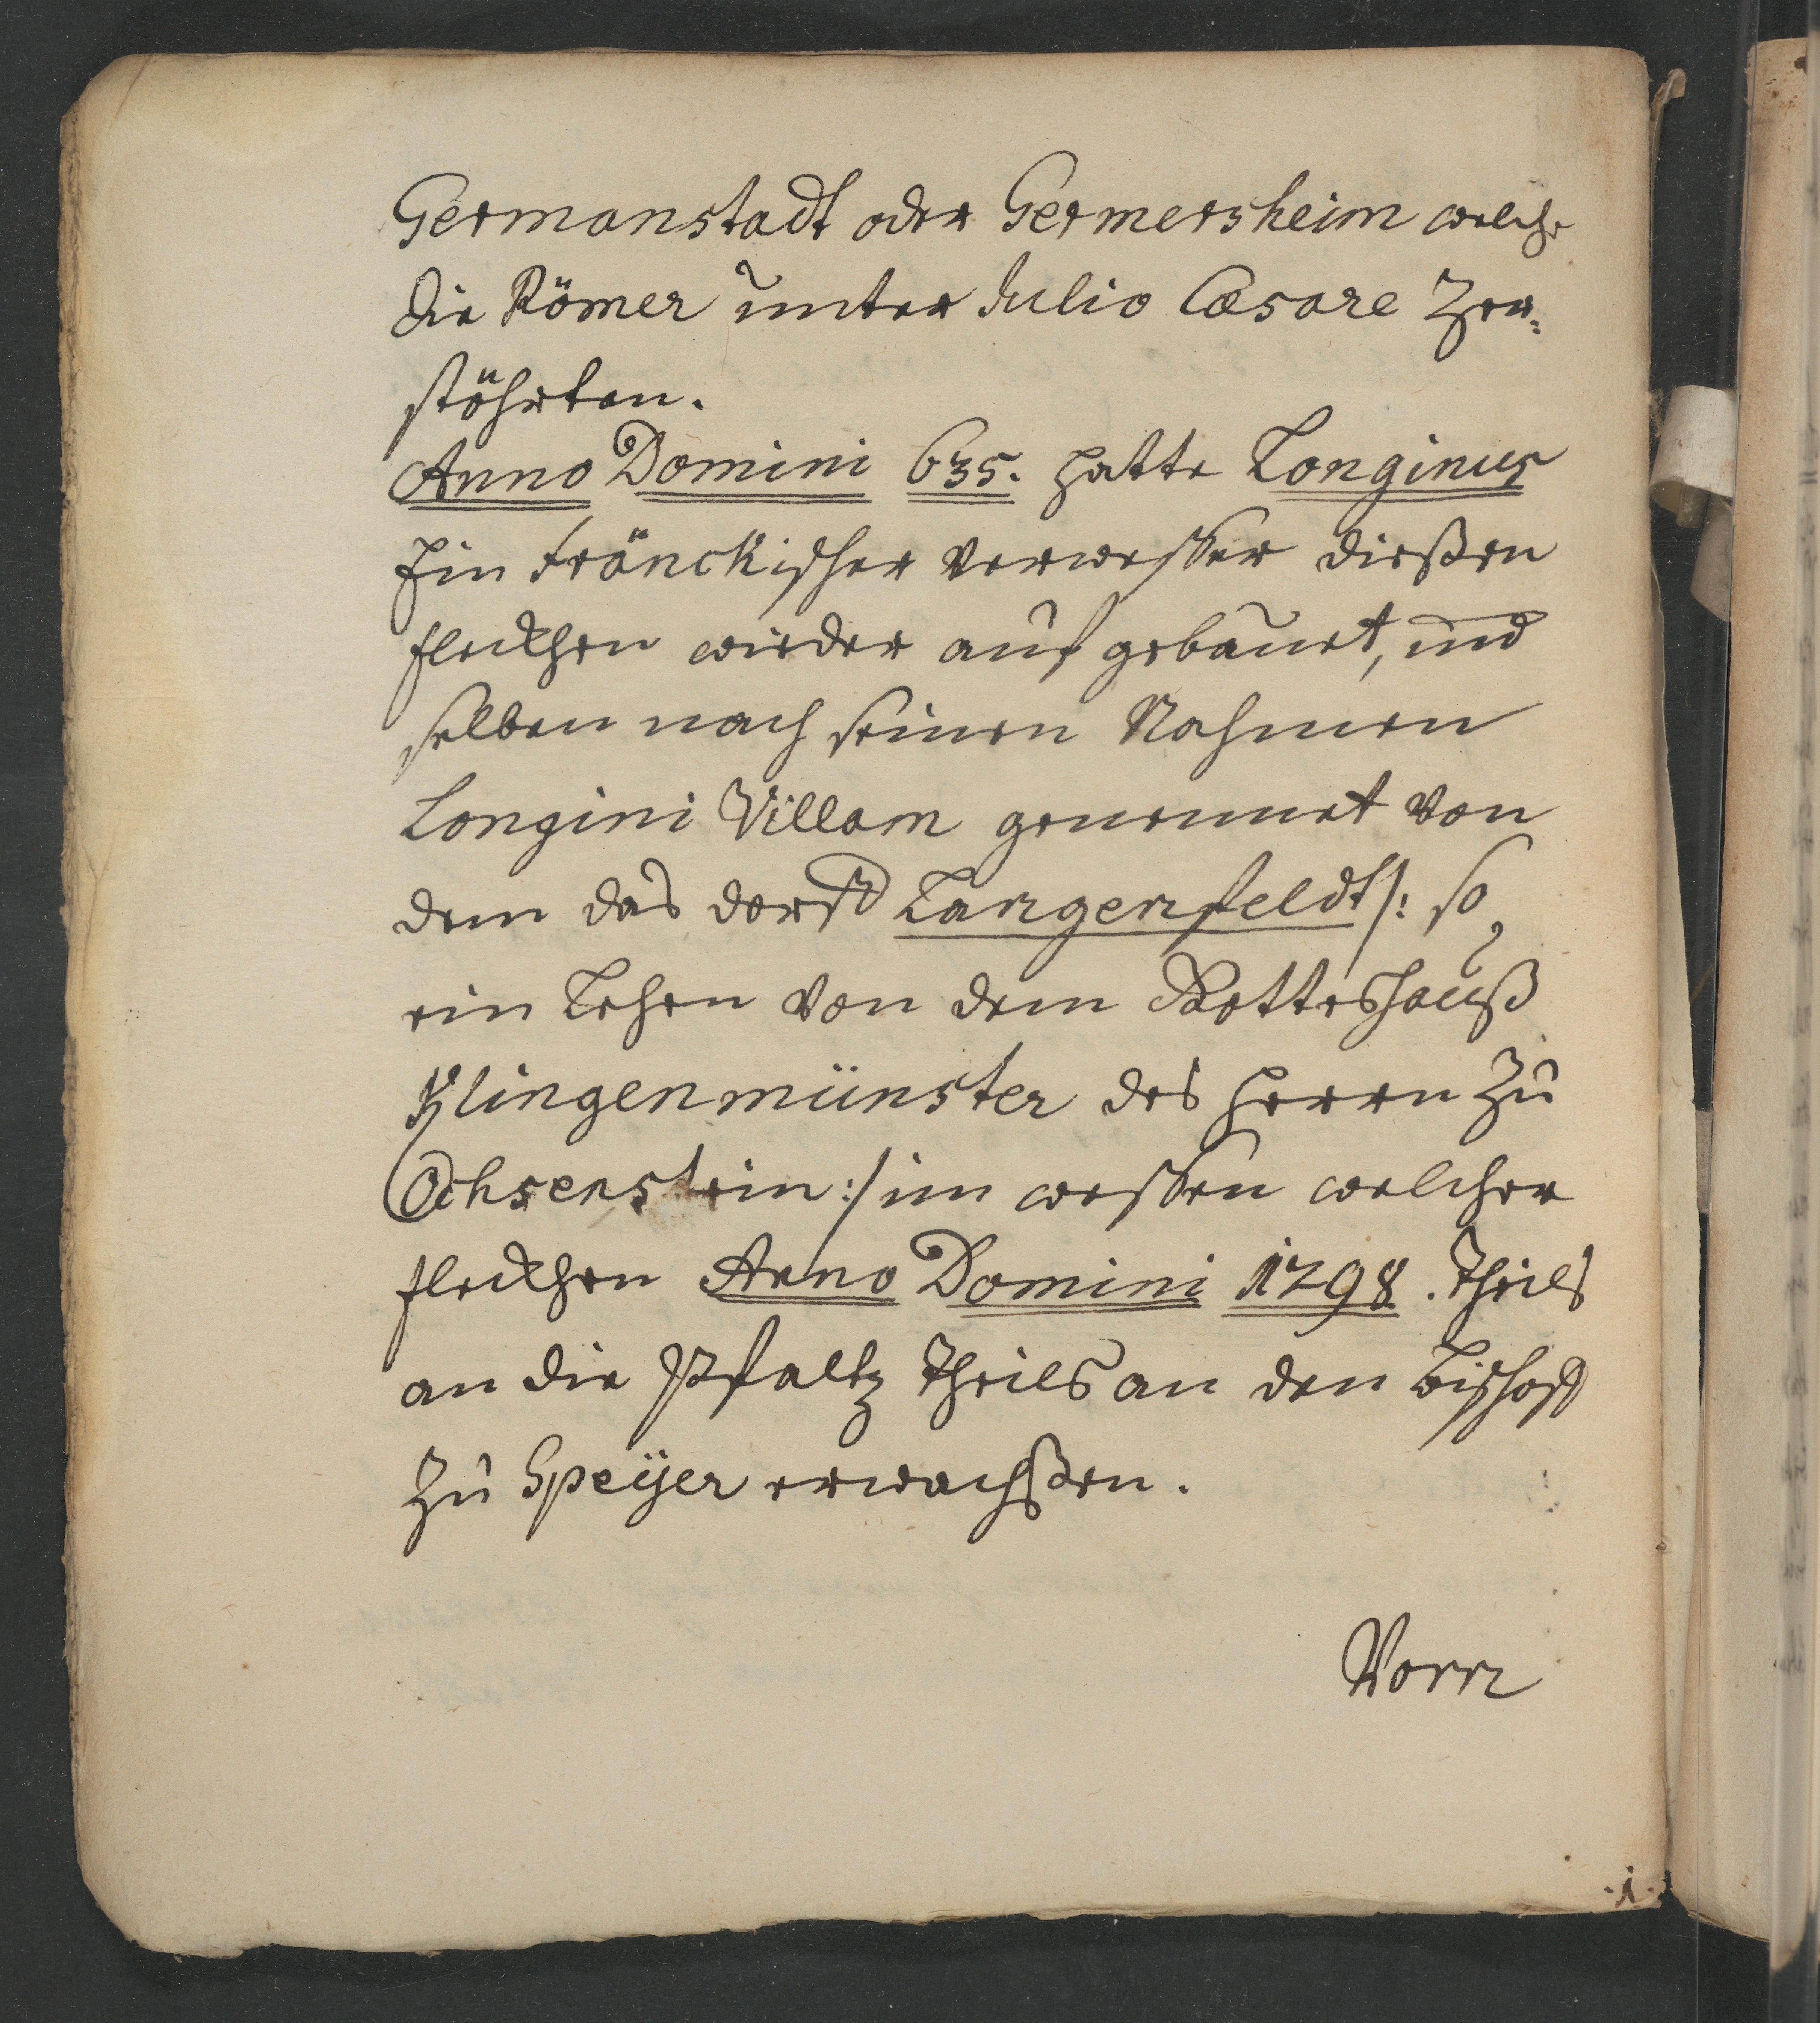 Germanstadt oder Germersheim welche
die Römer unter Julio Cæsare Zer¬
stöhrten.
Anno Domini 635. hatte Longinus
Ein Fränckischer Verwesser dießen
fleckhen wieder auf gebauet, und
selben nach seinen Nahmen
Longini Villam genennet von
dem das dorff Langenfeldt /: so
ein Lehen von dem Gotteshauß
Klingenmünster des Herrn Zu
Ochsenstein :/ im weßen welcher
fleckhen Anno Domini 1298. theils
an die Pfaltz theils an den Bischoff
Zu Speÿer erwachßen.
Vorn